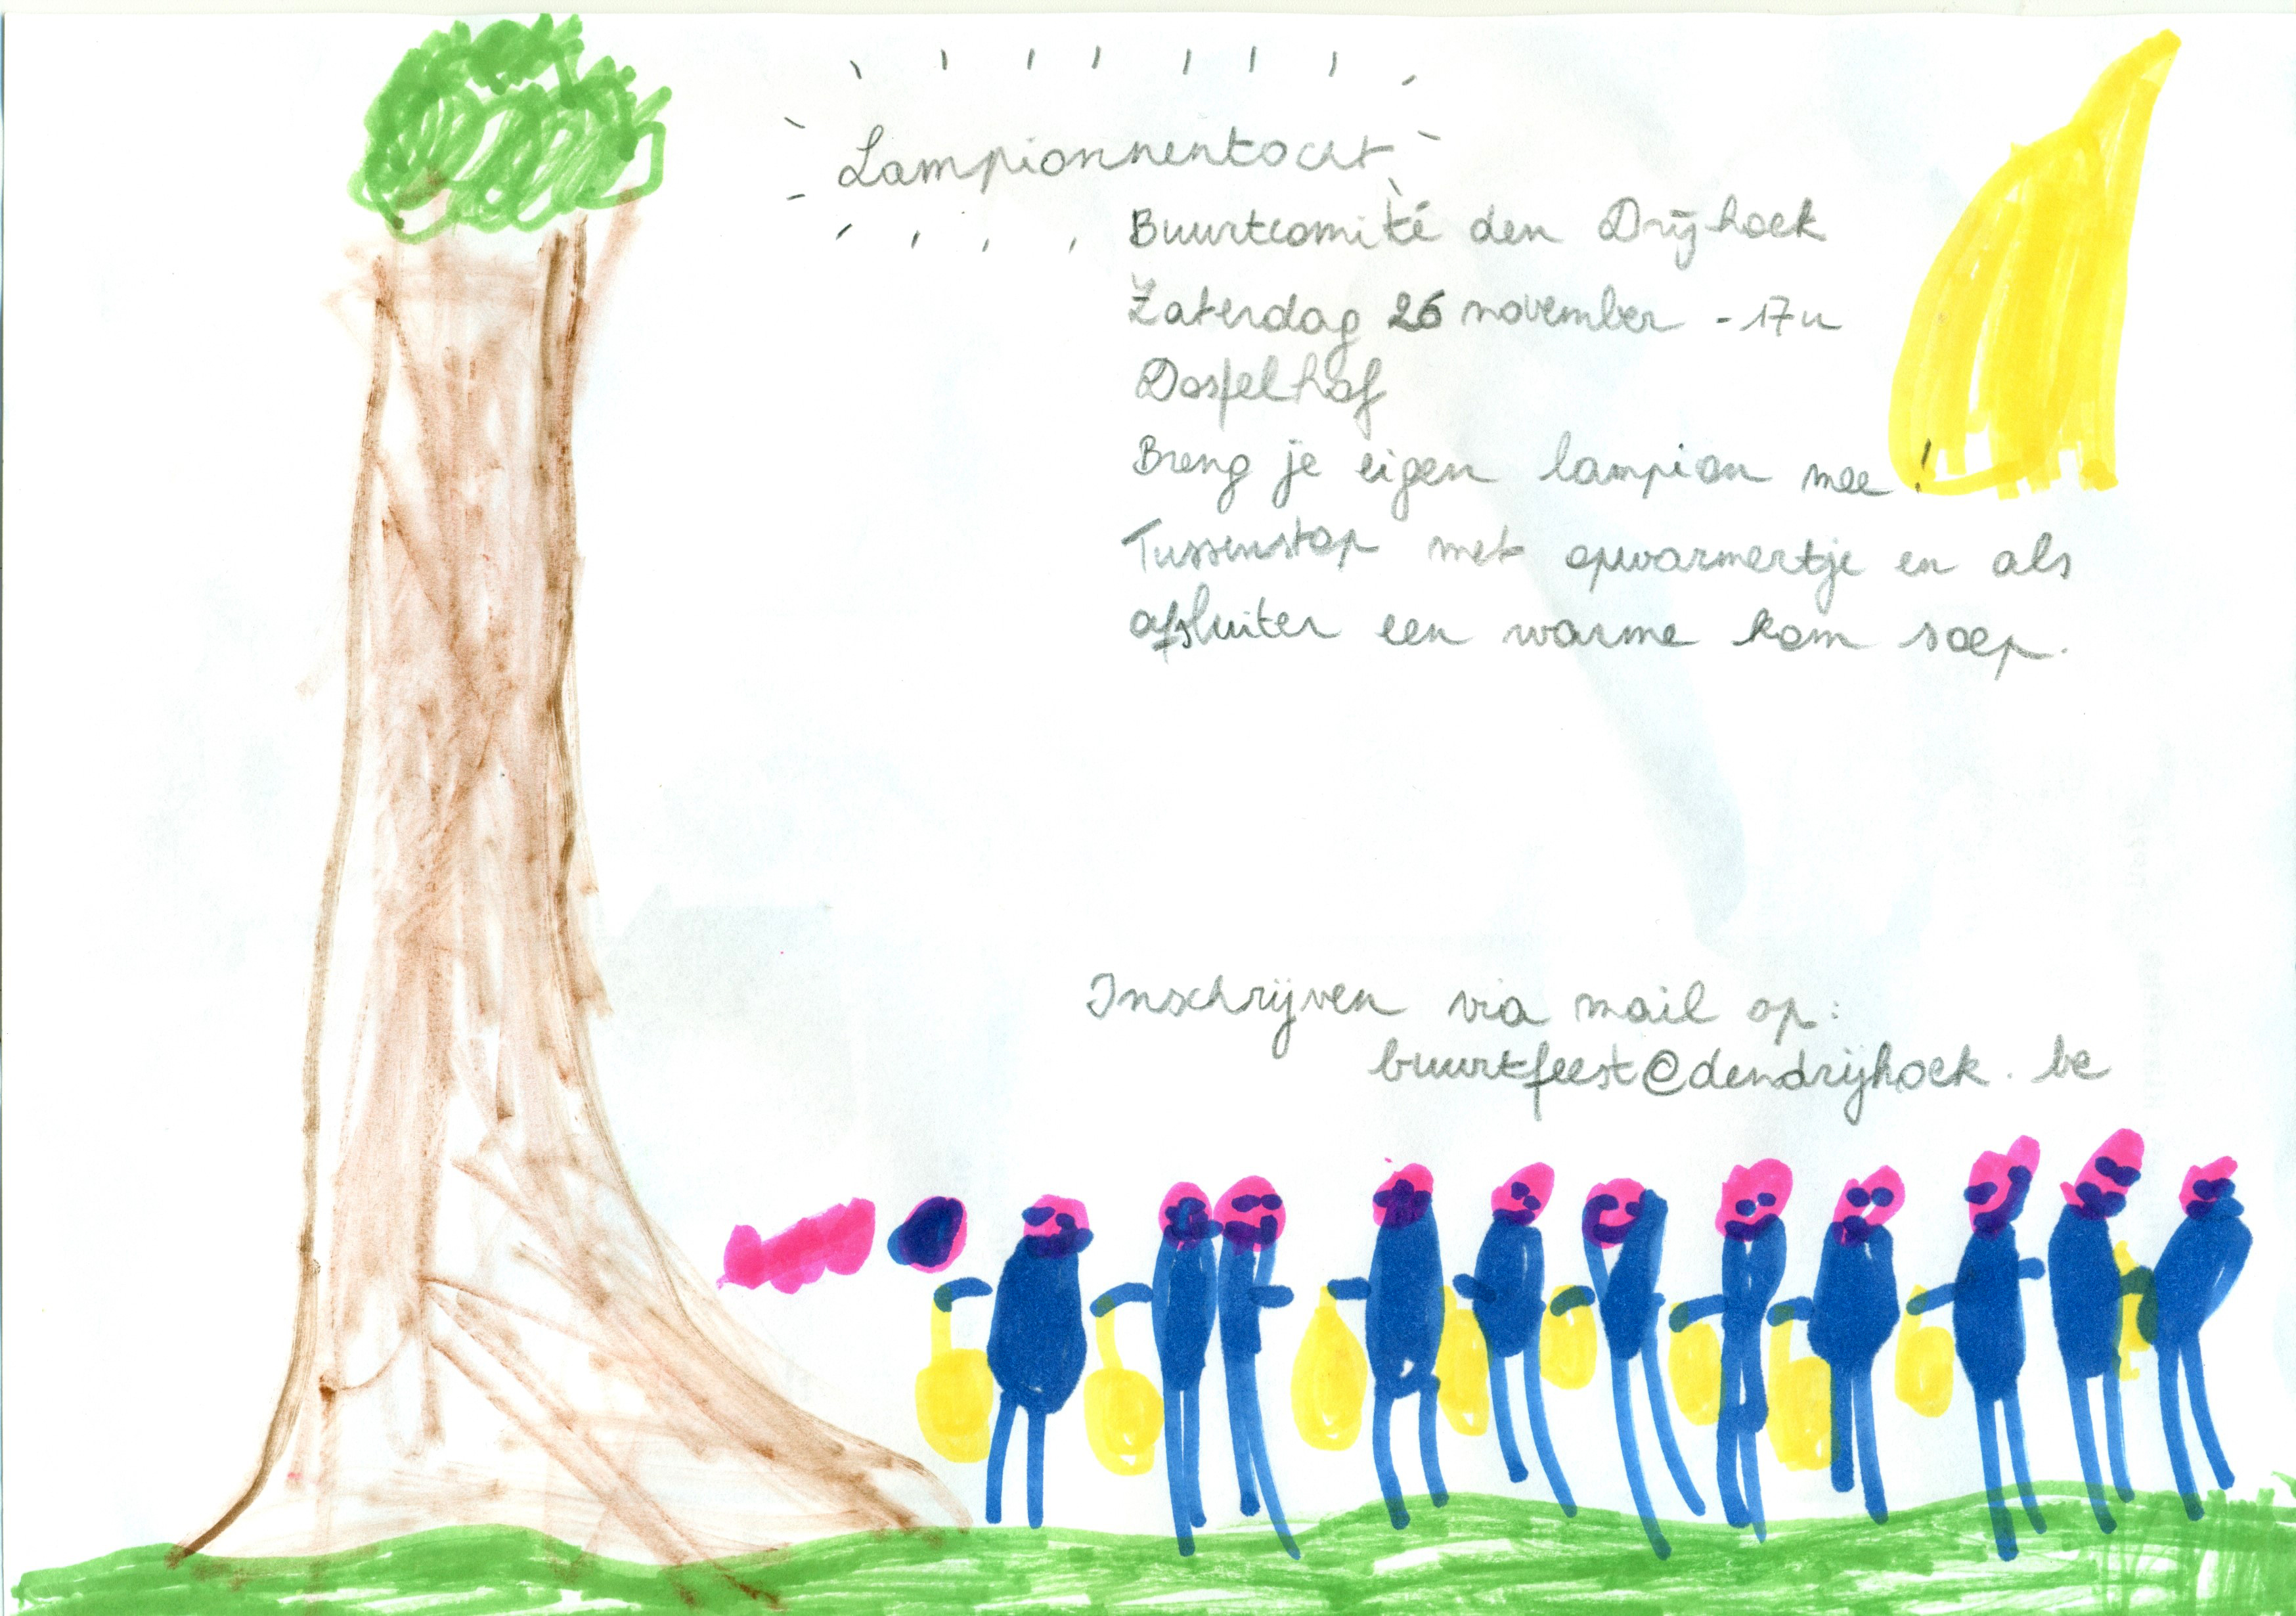 Lampionnentocht
Buurtcomité den Drijhoek
Zaterdag 26 november - 17u
Dosfelhof
Breng je eigen lampion mee!
Tussenstop met opwarmertje en als
afsluiter een warme kom soep.
Inschrijven via mail op:
buurtfeest@dendrijhoek.be